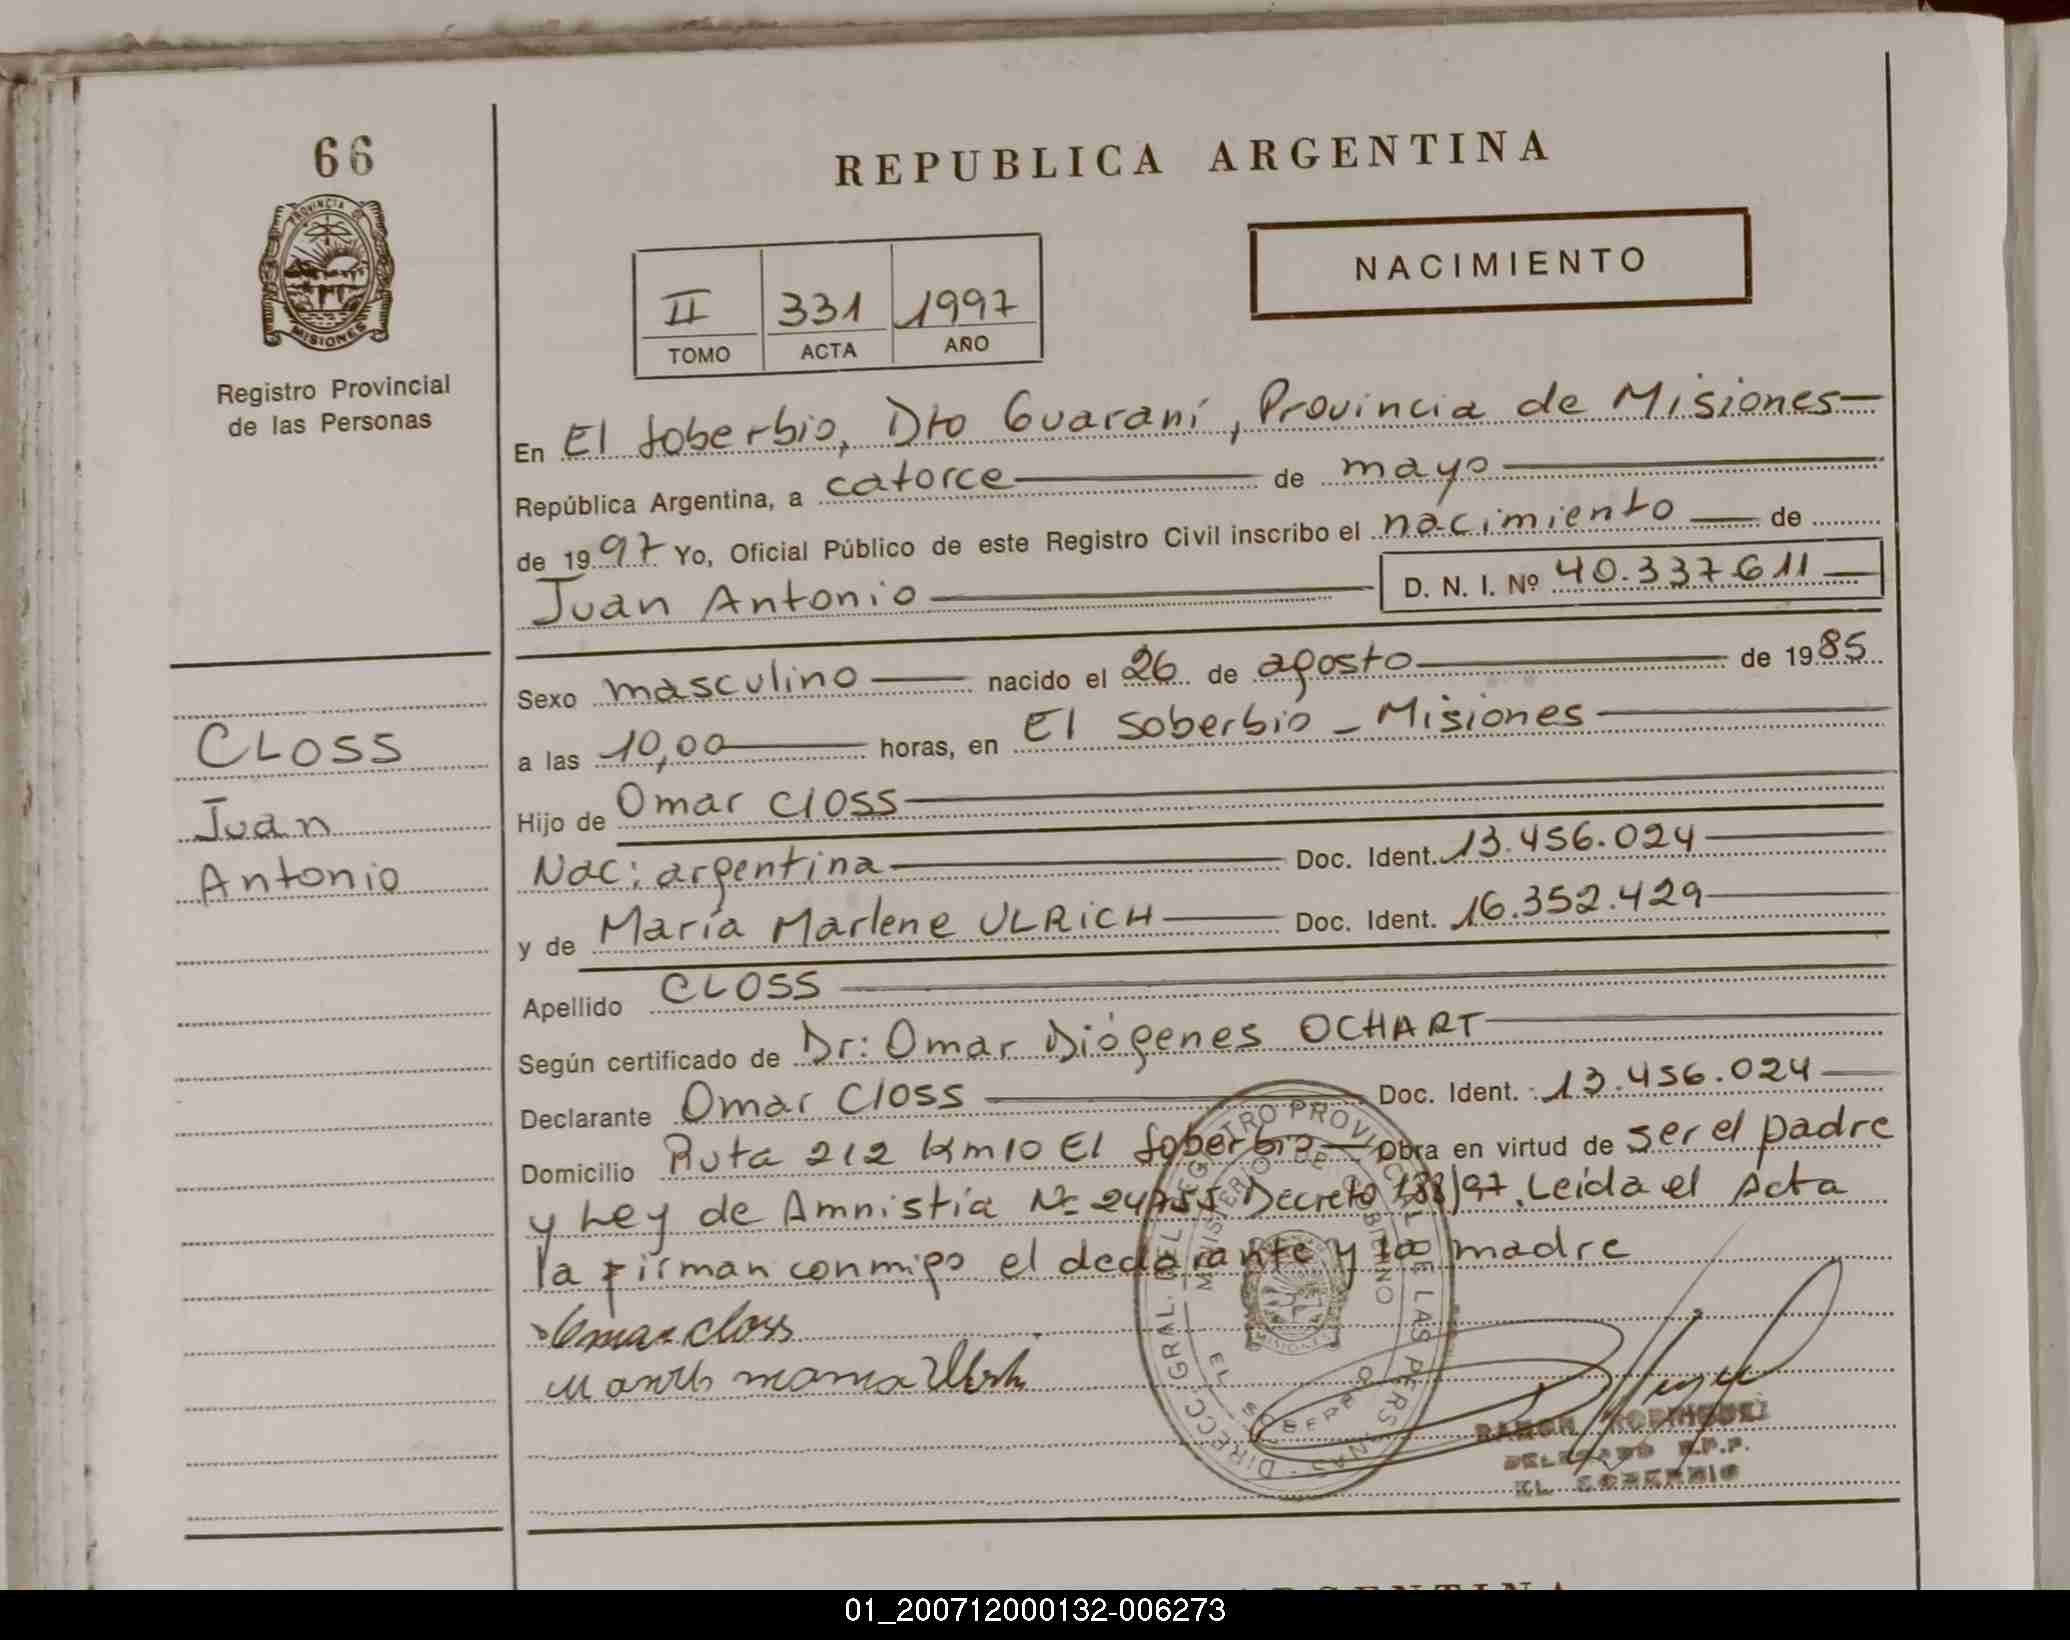 66
REPUBLICA ARGENTINA
PROVINCIA DE
MISIONES
Registro Provincial
de las Personas
NACIMIENTO
II 331 1997
TOMO ACTA AÑO
En El Soberbio, Dto Guaraní, Provincia de Misiones
República Argentina, a catorce de mayo
de 1997 Yo, Oficial Público de este Registro Civil inscribo el nacimiento de
Juan Antonio D. N. I. Nº 40.337.611
Sexo masculino nacido el 26 de agosto de 1985
a las 10,00 horas, en El Soberbio - Misiones
Hijo de Omar Closs
Nac: argentina Doc. Ident. 13.456.024
y de María Marlene ULRICH Doc. Ident. 16.352.429
Apellido CLOSS
Según certificado de Dr: Omar Diógenes OCHART
Declarante Omar Closs Doc. Ident. 13.456.024
Domicilio Ruta 212 Km10 El Soberbio Obra en virtud de ser el padre
y Ley de Amnistia Nº 24755 Decreto 188/97. Leída el Acta
la firman conmigo el declarante y la madre
Omar Closs
CLOSS
Juan
Antonio
DIRECC. GRAL. DEL REGISTRO PROVINCIAL DE LAS PERSONAS
MINISTERIO DE GOBIERNO
MISIONES
EL SOBERBIO
RAMON RODRIGUEZ
DELEGADO R.P.P.
EL SOBERBIO
ARGENTINA
01_200712000132-006273